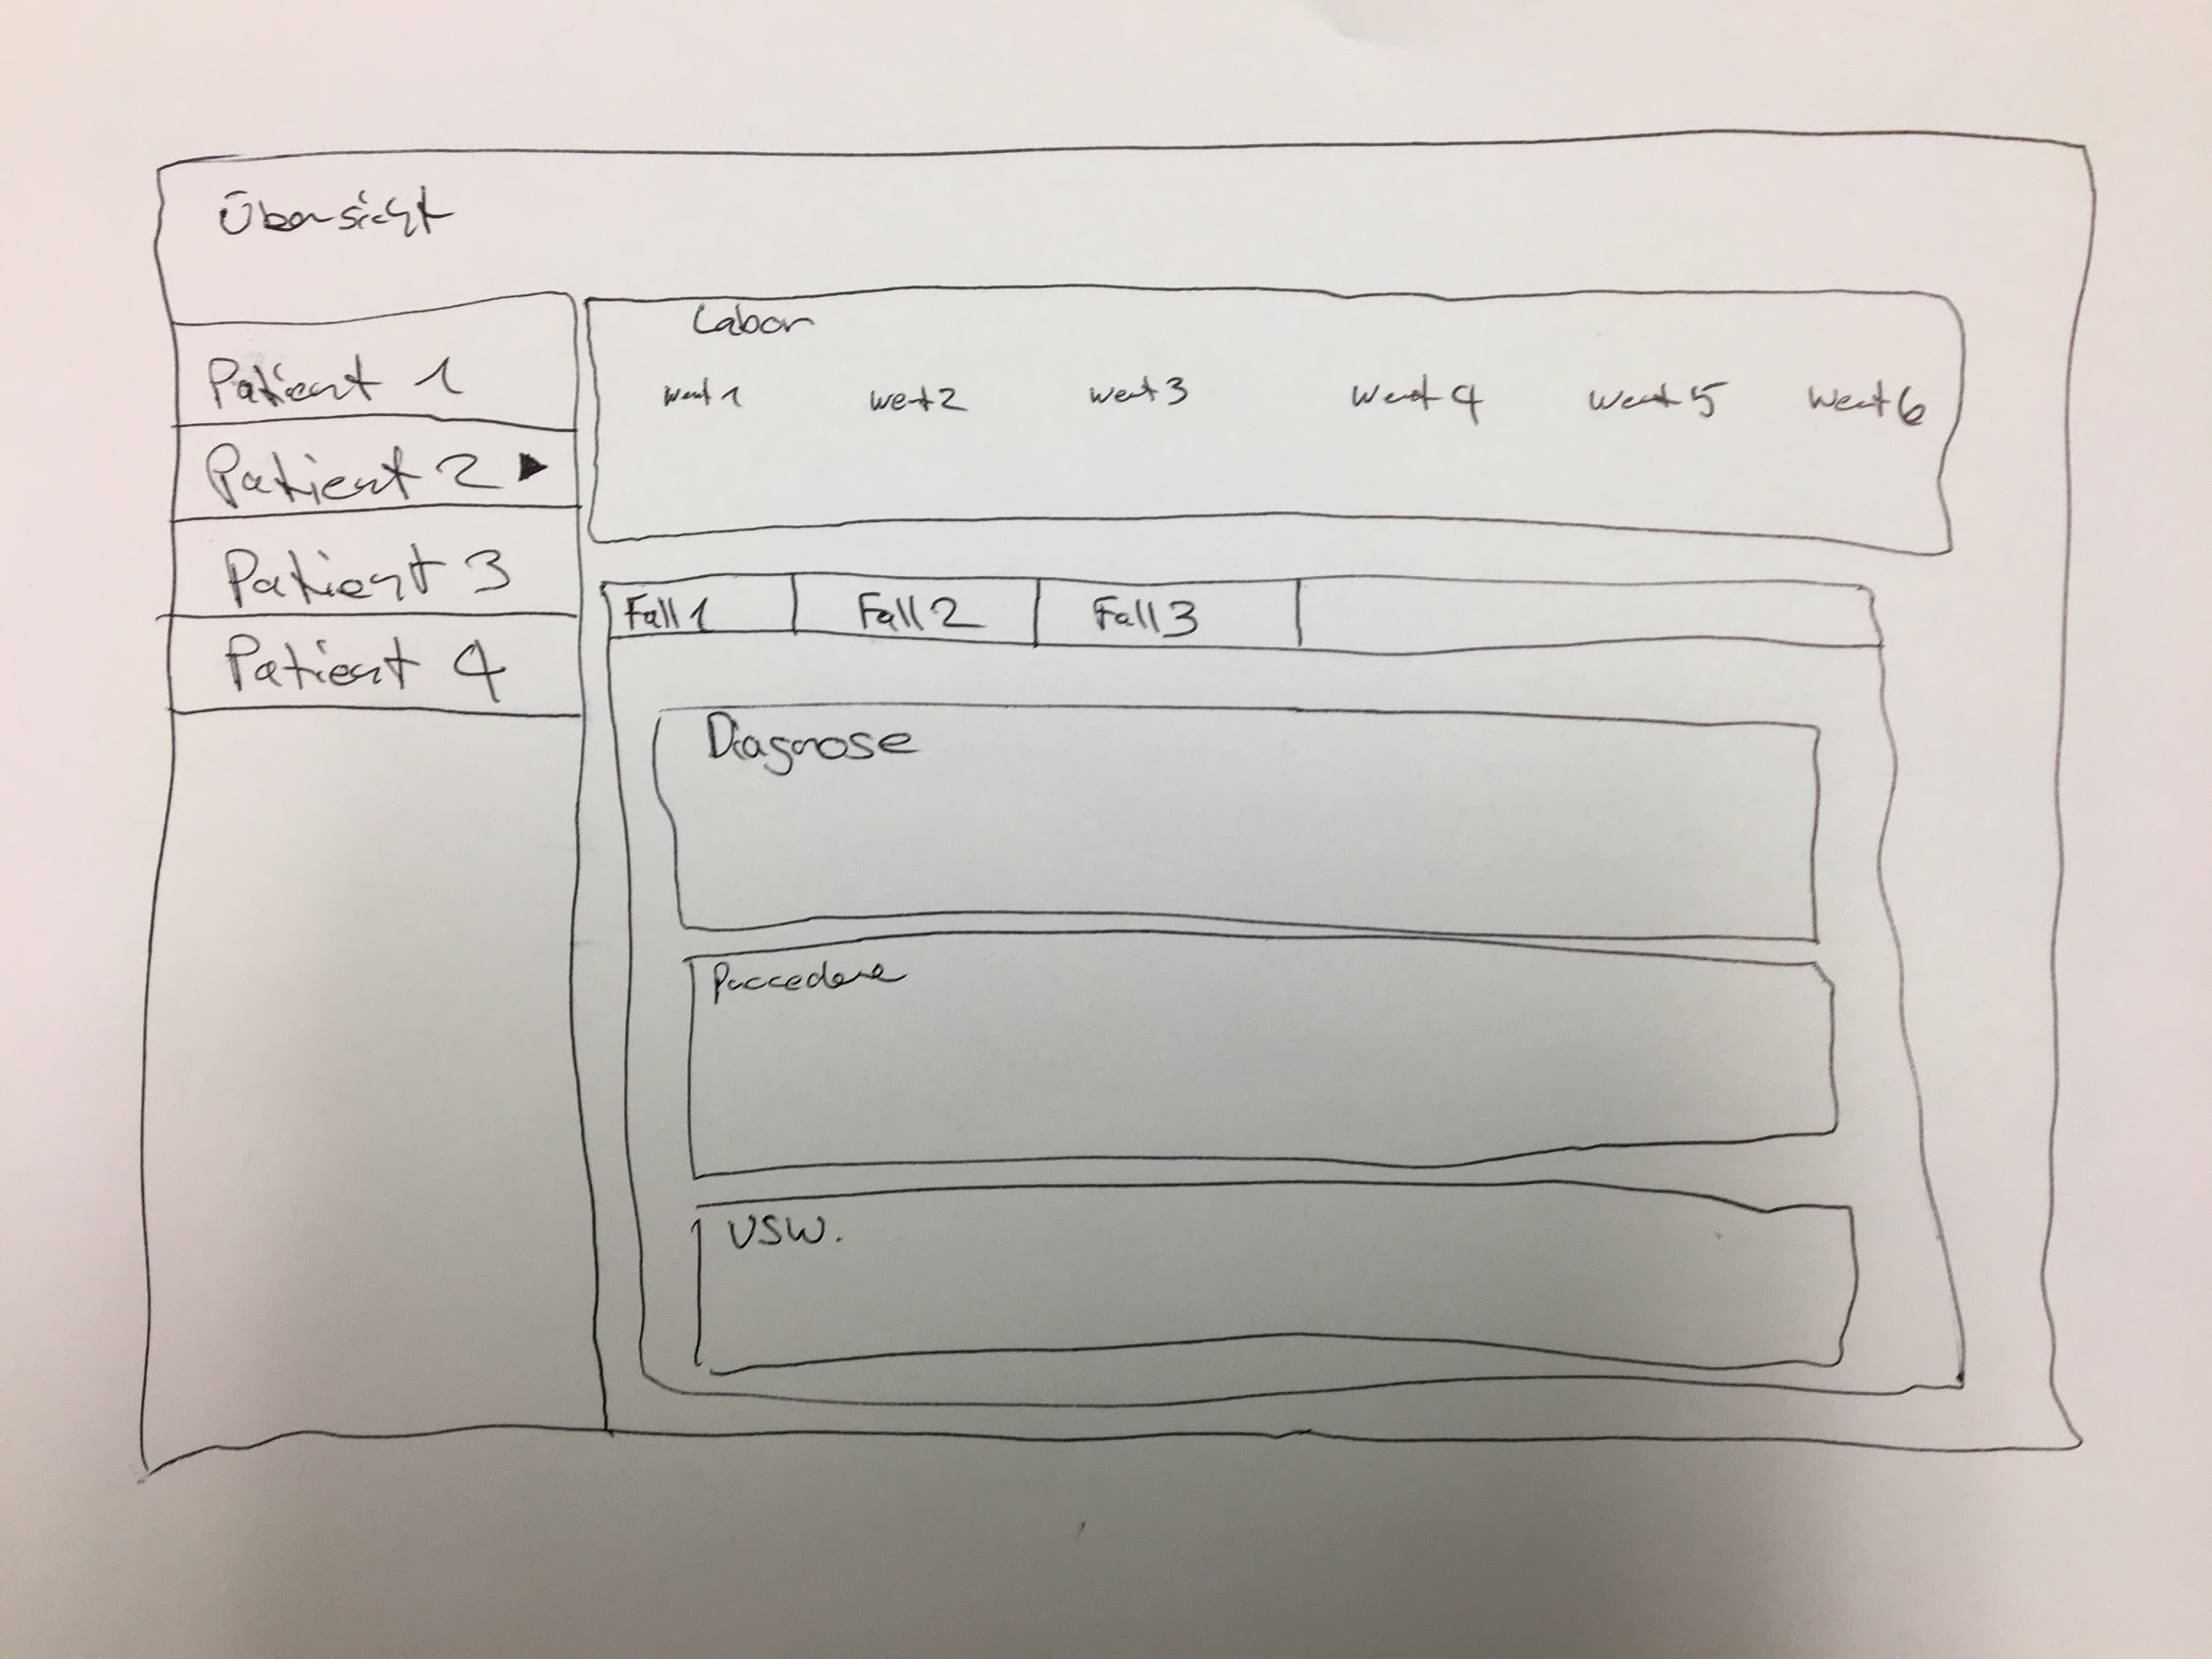 Übersicht
Patient 1
Patient 2 ▶
Patient 3
Patient 4
Labor
Wert 1 Wert 2 Wert 3 Wert 4 Wert 5 Wert 6
Fall 1 Fall 2 Fall 3
Diagnose
Proccedere
USW.